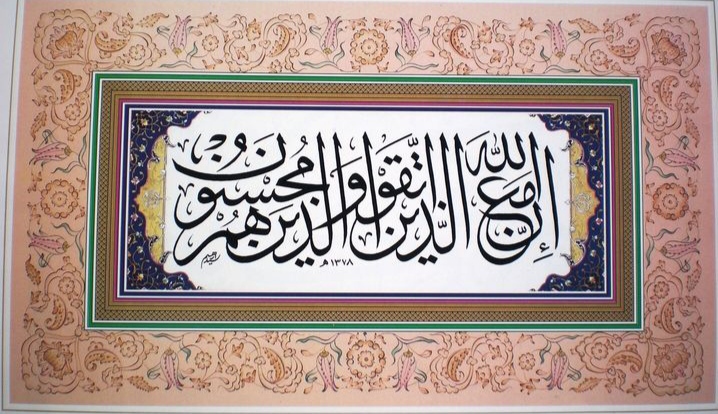 إِنَّ اللَّهَ مَعَ الَّذِينَ اتَّقَوْا وَالَّذِينَ هُمْ مُحْسِنُونَ
١٣٧٨ هـ